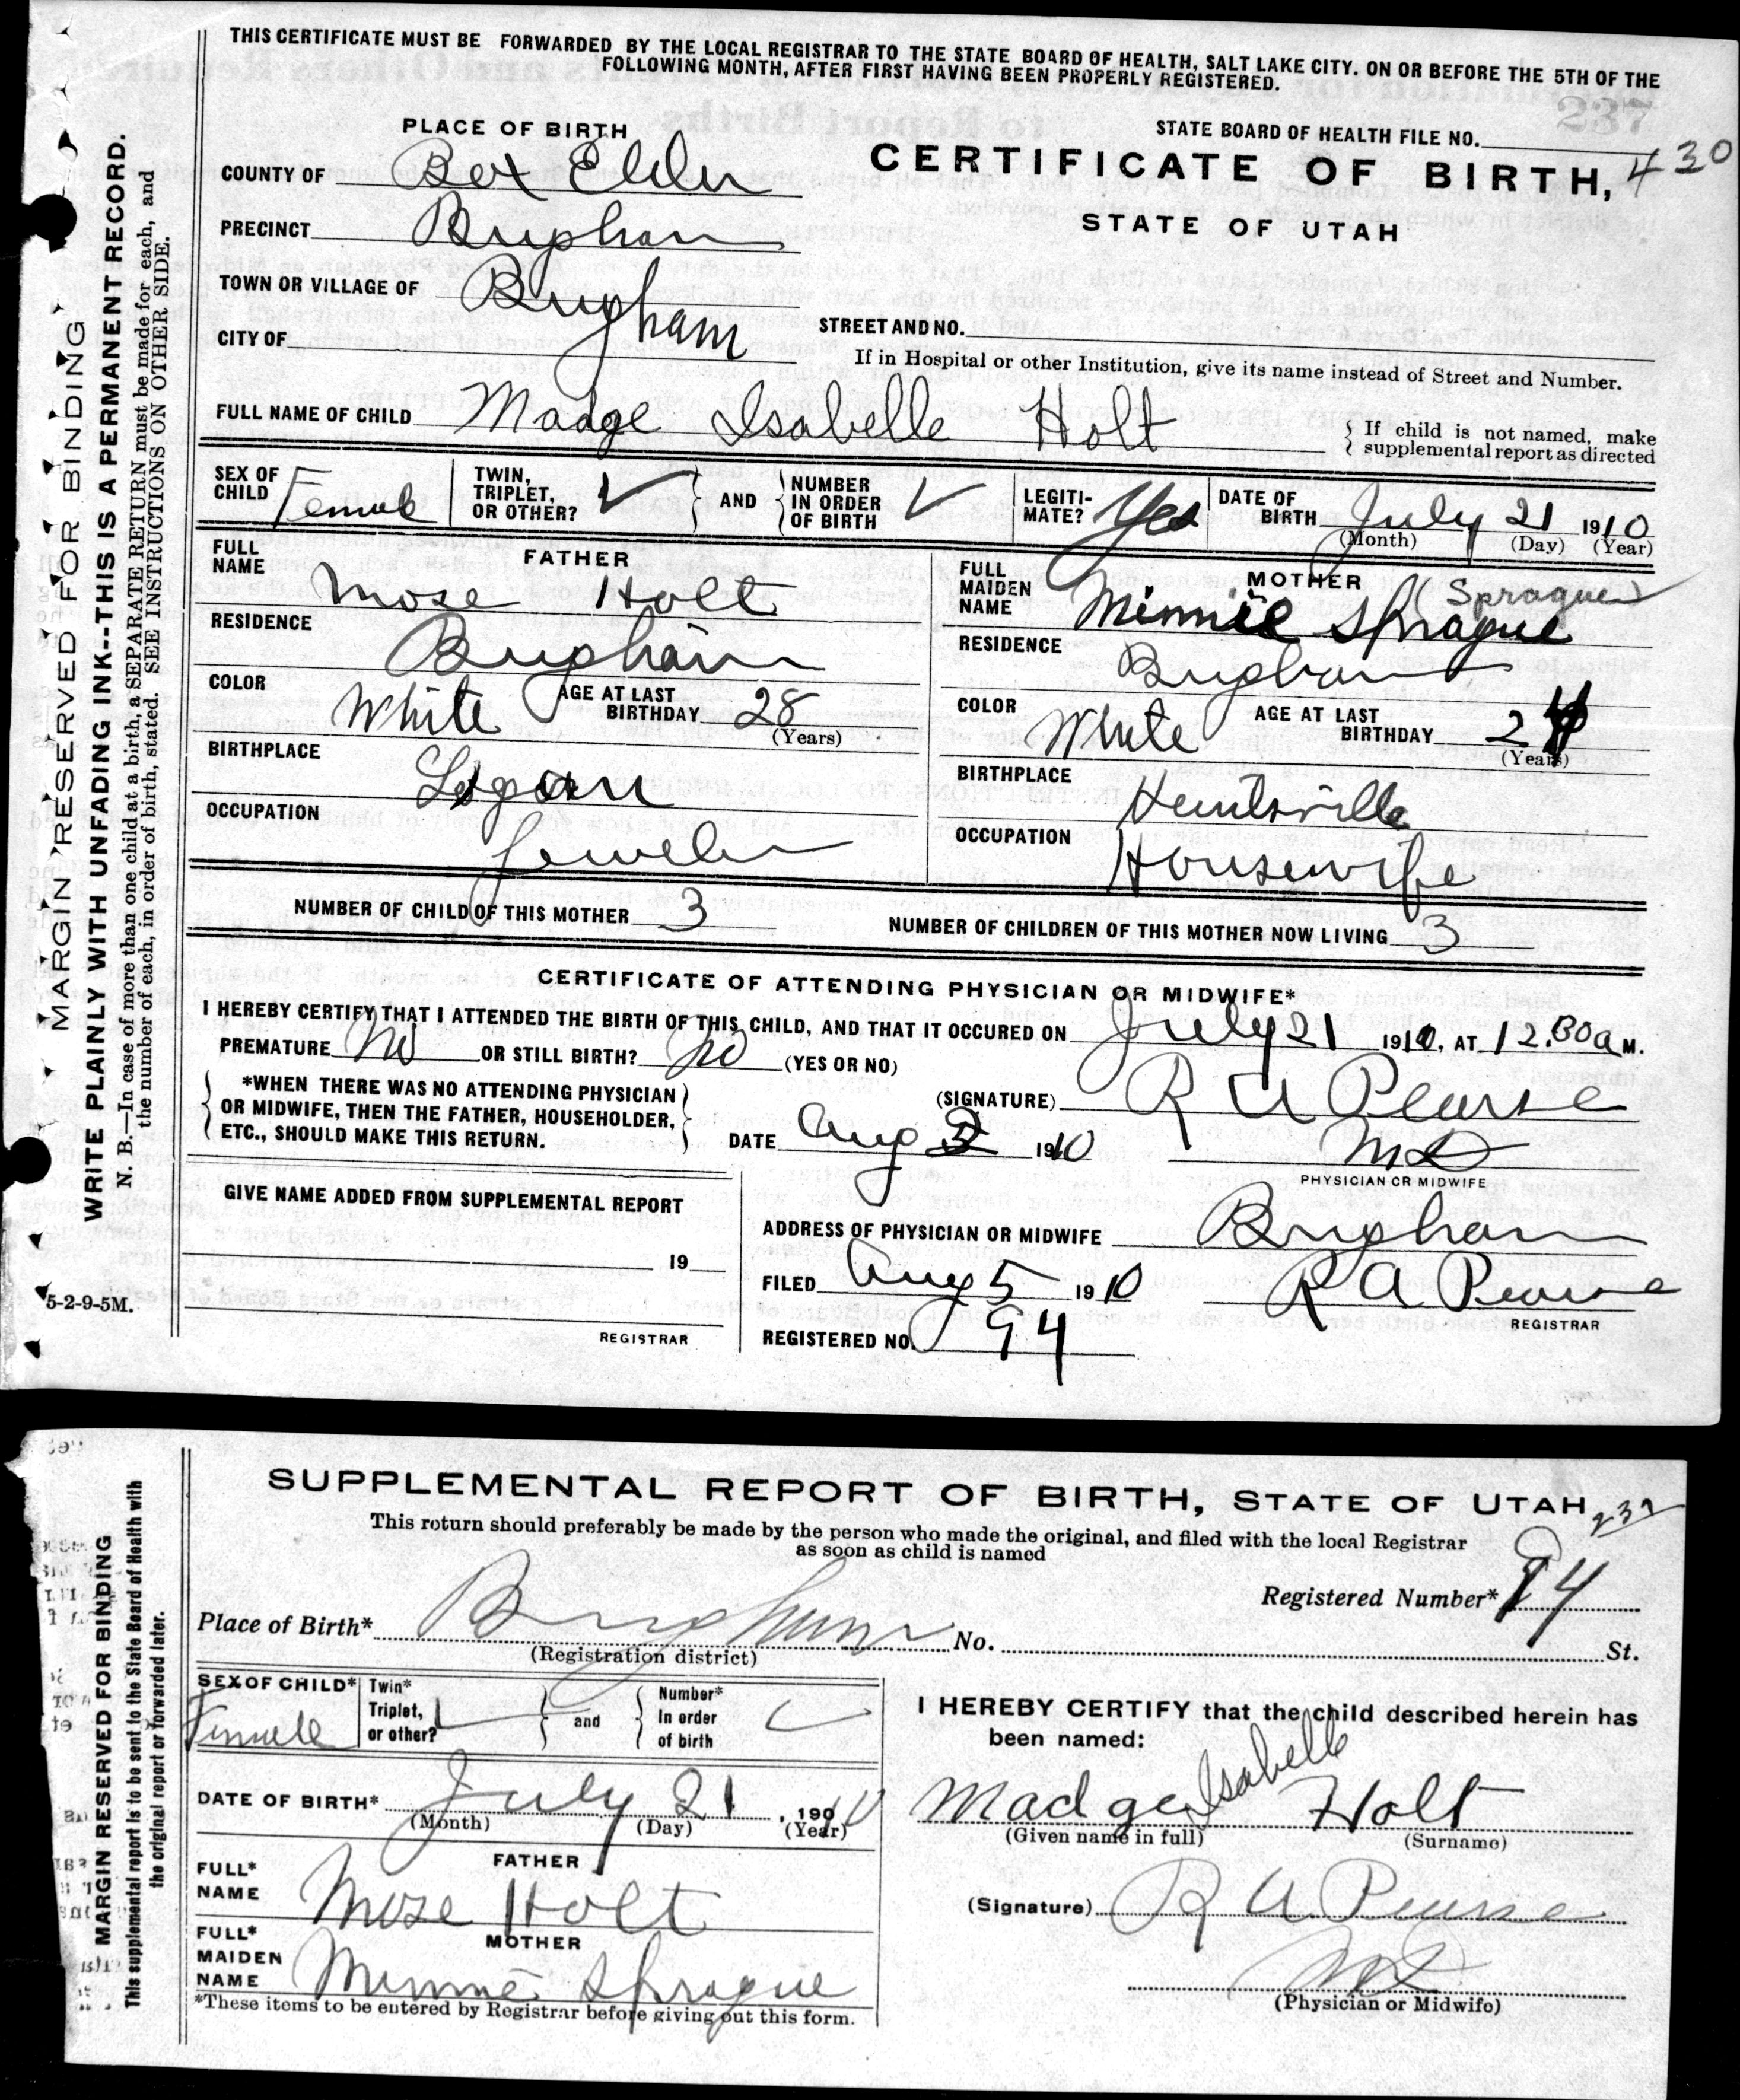 THIS CERTIFICATE MUST BE FORWARDED BY THE LOCAL REGISTRAR TO THE STATE BOARD OF HEALTH, SALT LAKE CITY. ON OR BEFORE THE 5TH OF THE
FOLLOWING MONTH, AFTER FIRST HAVING BEEN PROPERLY REGISTERED.
MARGIN RESERVED FOR BINDING
WRITE PLAINLY WITH UNFADING INK--THIS IS A PERMANENT RECORD.
N. B.—In case of more than one child at a birth, a SEPARATE RETURN must be made for each, and
the number of each, in order of birth, stated. SEE INSTRUCTIONS ON OTHER SIDE.
5-2-9-5M.
PLACE OF BIRTH
STATE BOARD OF HEALTH FILE NO. 430
237
COUNTY OF Box Elder
CERTIFICATE OF BIRTH,
PRECINCT Brigham
STATE OF UTAH
TOWN OR VILLAGE OF Brigham
CITY OF
STREET AND NO.
If in Hospital or other Institution, give its name instead of Street and Number.
FULL NAME OF CHILD Madge Isabelle Holt
If child is not named, make
supplemental report as directed
SEX OF CHILD Female
TWIN, TRIPLET, OR OTHER? ✓ AND NUMBER IN ORDER OF BIRTH ✓
LEGITIMATE? Yes
DATE OF BIRTH July 21 1910
(Month) (Day) (Year)
FATHER
FULL NAME Mose Holt
RESIDENCE Brigham
COLOR White AGE AT LAST BIRTHDAY 28
(Years)
BIRTHPLACE Logan
OCCUPATION Jeweler
MOTHER
(Sprague)
FULL MAIDEN NAME Minnie Sprague
RESIDENCE Brigham
COLOR White AGE AT LAST BIRTHDAY 24
(Years)
BIRTHPLACE Huntsville
OCCUPATION Housewife
NUMBER OF CHILD OF THIS MOTHER 3
NUMBER OF CHILDREN OF THIS MOTHER NOW LIVING 3
CERTIFICATE OF ATTENDING PHYSICIAN OR MIDWIFE*
I HEREBY CERTIFY THAT I ATTENDED THE BIRTH OF THIS CHILD, AND THAT IT OCCURED ON July 21 1910, AT 12.30a M.
PREMATURE No OR STILL BIRTH? No (YES OR NO)
*WHEN THERE WAS NO ATTENDING PHYSICIAN
OR MIDWIFE, THEN THE FATHER, HOUSEHOLDER,
ETC., SHOULD MAKE THIS RETURN.
(SIGNATURE) R A Pearse
DATE Aug 1910
MD
PHYSICIAN OR MIDWIFE
GIVE NAME ADDED FROM SUPPLEMENTAL REPORT
19
REGISTRAR
ADDRESS OF PHYSICIAN OR MIDWIFE Brigham
FILED Aug 5 1910 R A Pearse
REGISTRAR
REGISTERED NO. 94
MARGIN RESERVED FOR BINDING
This supplemental report is to be sent to the State Board of Health with
the original report or forwarded later.
SUPPLEMENTAL REPORT OF BIRTH, STATE OF UTAH
237
This return should preferably be made by the person who made the original, and filed with the local Registrar
as soon as child is named
Registered Number* 94
Place of Birth* Brigham No. St.
(Registration district)
SEX OF CHILD* Female
Twin* Triplet, or other? and Number* In order of birth
DATE OF BIRTH* July 21, 1910
(Month) (Day) (Year)
FATHER
FULL* NAME Mose Holt
MOTHER
FULL* MAIDEN NAME Minnie Sprague
*These items to be entered by Registrar before giving out this form.
I HEREBY CERTIFY that the child described herein has
been named:
Madge Isabelle Holt
(Given name in full) (Surname)
(Signature) R A Pearse
MD
(Physician or Midwife)